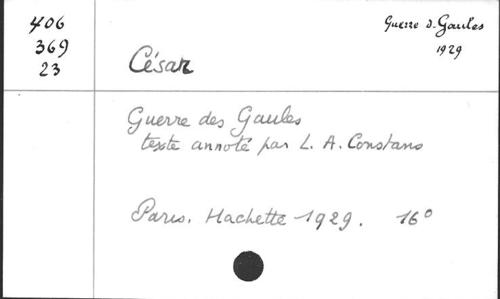 406
369
23
Guerre d. Gaules
1929
César
Guerre des Gaules
texte annoté par L. A. Constans
Paris. Hachette 1929. 16°